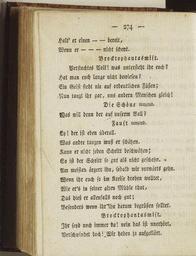 — 274 —
Holt' er einen — — bereit,
Wenn er — — — nicht scheut.
Brocktophantasmist.
Verfluchtes Volk! was untersteht ihr euch?
Hat man euch lange nicht bewiesen?
Ein Geist steht nie auf ordentlichen Füßen;
Nun tanzt ihr gar, uns andern Menschen gleich!
Die Schöne tanzend.
Was will denn der auf unserm Ball?
Faust tanzend.
Ey! der ist eben überall.
Was andre tanzen muß er schätzen.
Kann er nicht jeden Schritt beschwätzen;
So ist der Schritt so gut als nicht geschehn.
Am meisten ärgert ihn, sobald wir vorwärts gehn.
Wenn ihr euch so im Kreise drehen wolltet,
Wie er's in seiner alten Mühle thut,
Das hieß er allenfalls noch gut;
Besonders wenn ihr ihn darum begrüßen solltet.
Brocktophantasmist.
Ihr seyd noch immer da! nein das ist unerhört.
Verschwindet doch! Wir haben ja aufgeklärt!